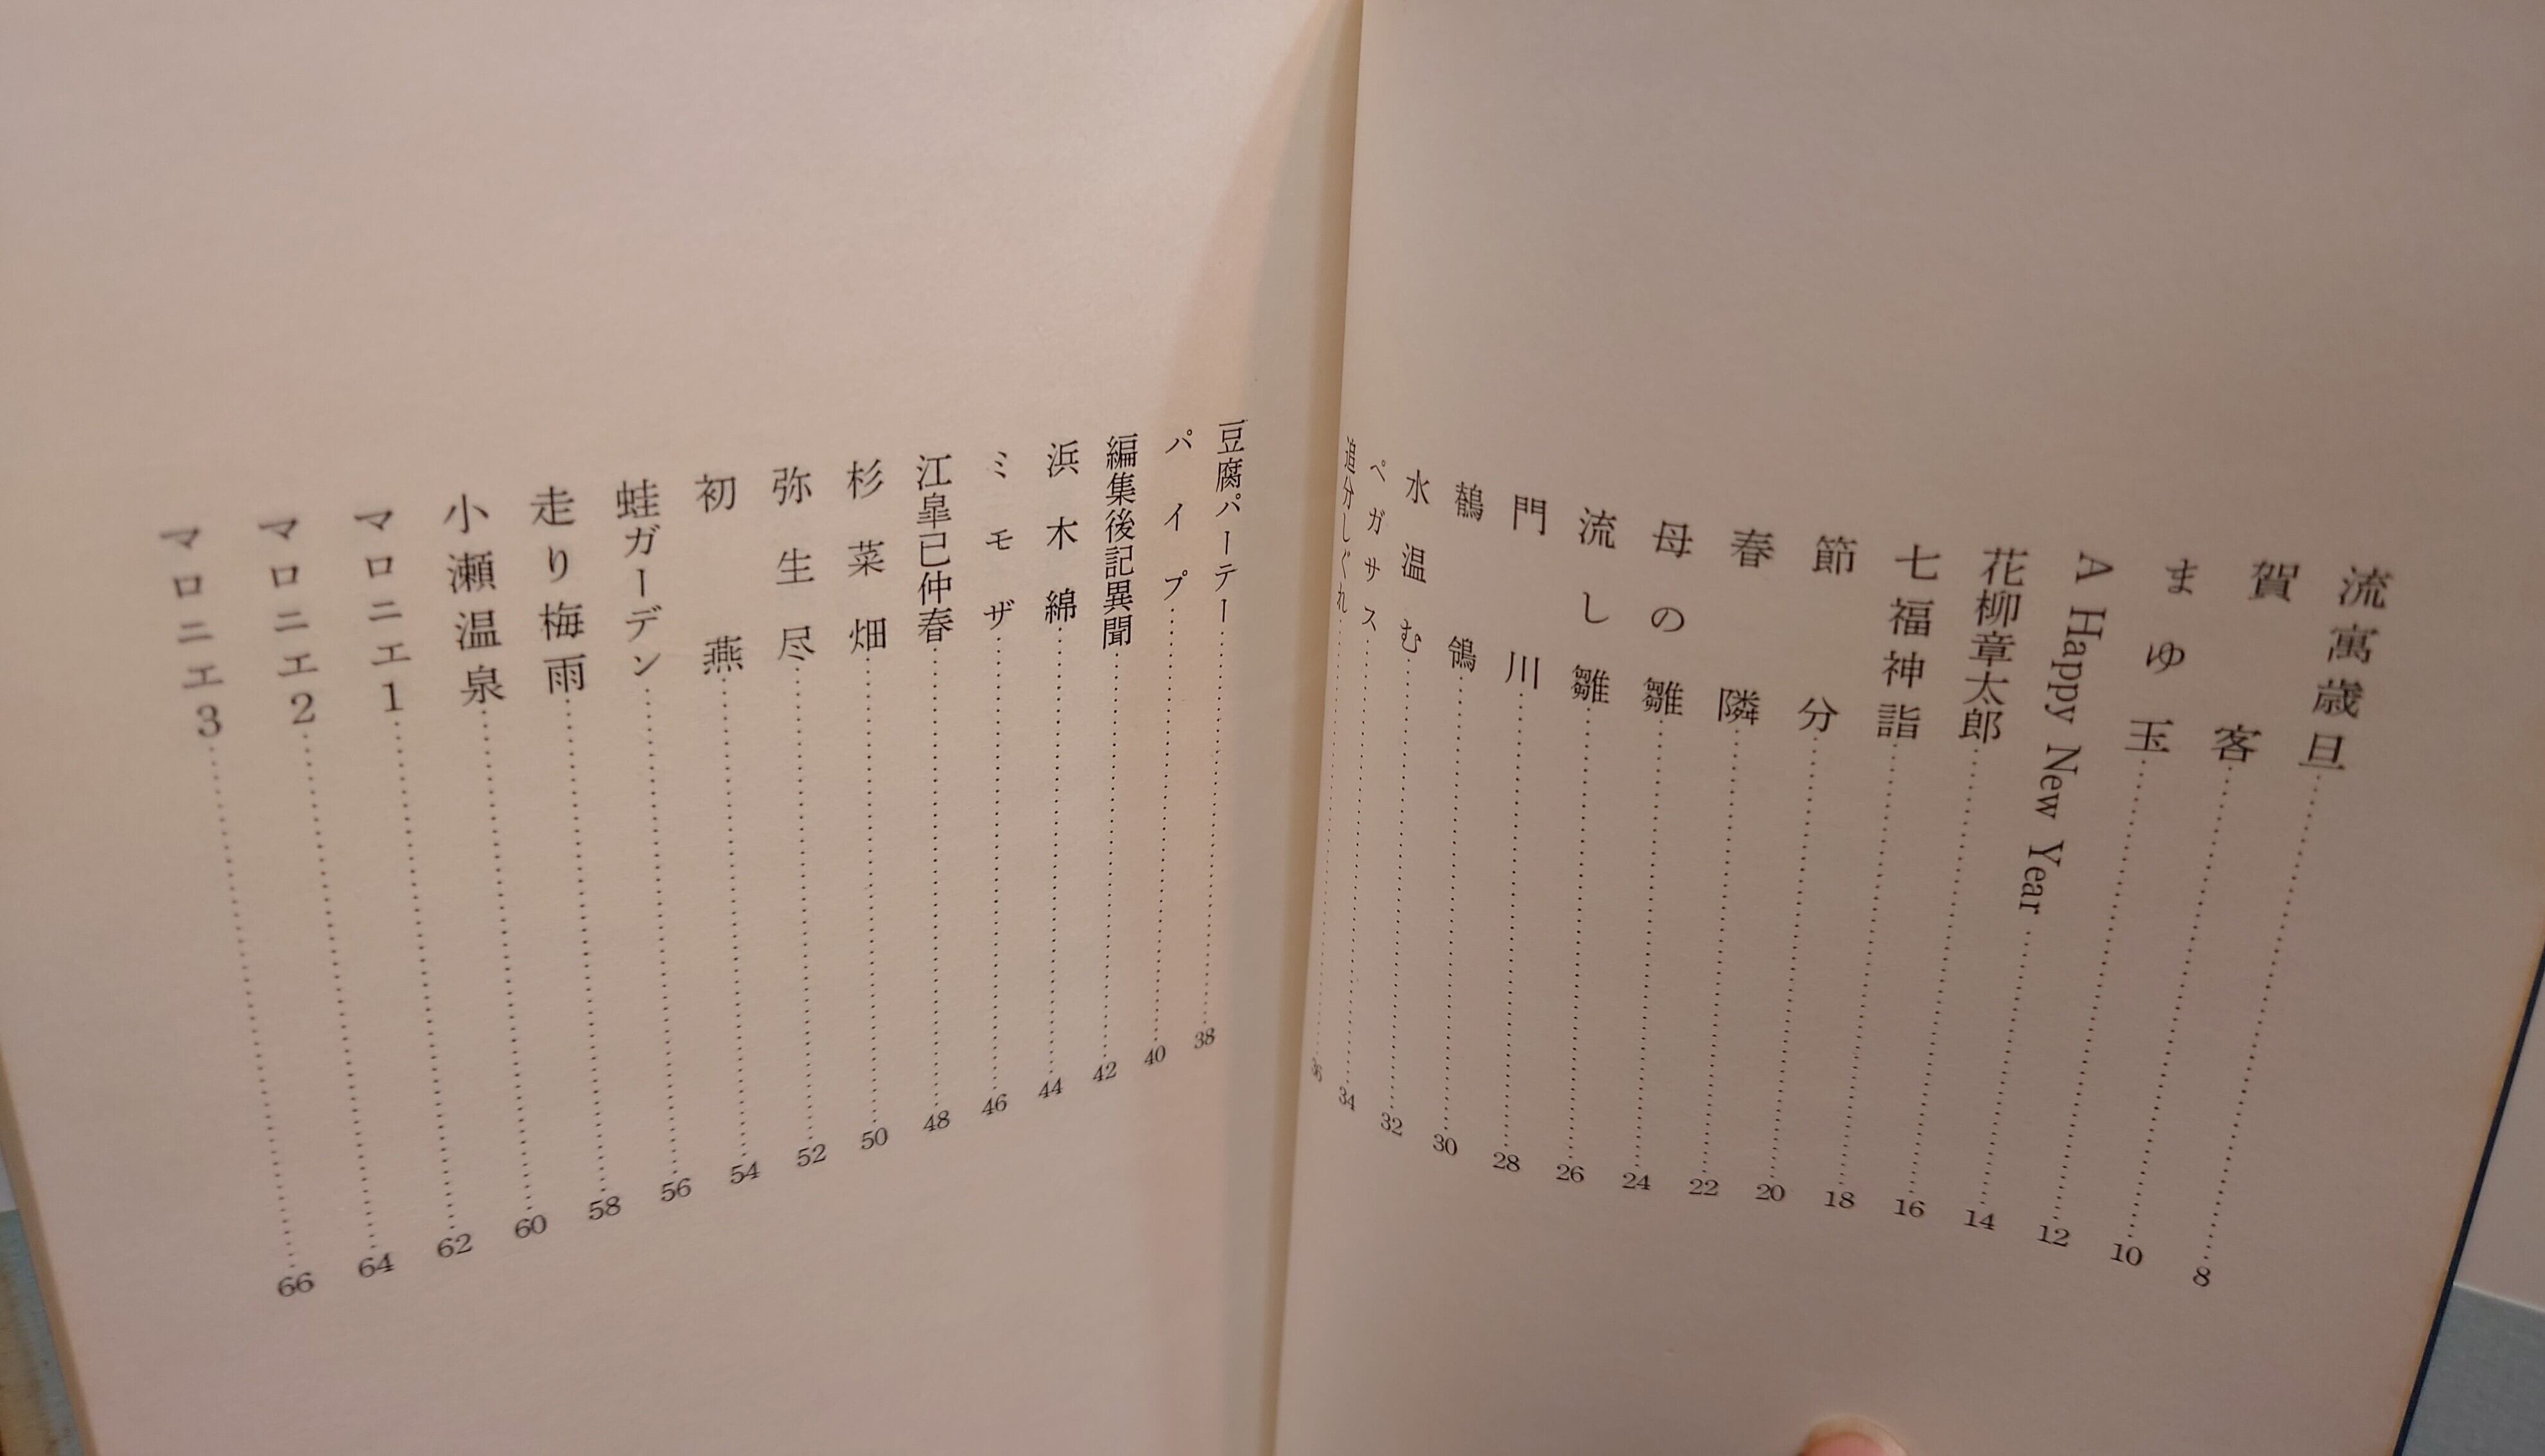 流寓歳旦……8
賀客……10
まゆ玉……12
A Happy New Year……14
花柳章太郎……16
七福神詣……18
節分……20
春隣……22
母の雛……24
流し雛……26
門川……28
鶺鴒……30
水温む……32
ペガサス……34
追分しぐれ……36
豆腐パーテー……38
パイプ……40
編集後記異聞……42
浜木綿……44
ミモザ……46
江皐已仲春……48
杉菜畑……50
弥生尽……52
初燕……54
蛙ガーデン……56
走り梅雨……58
小瀬温泉……60
マロニエ1……62
マロニエ2……64
マロニエ3……66